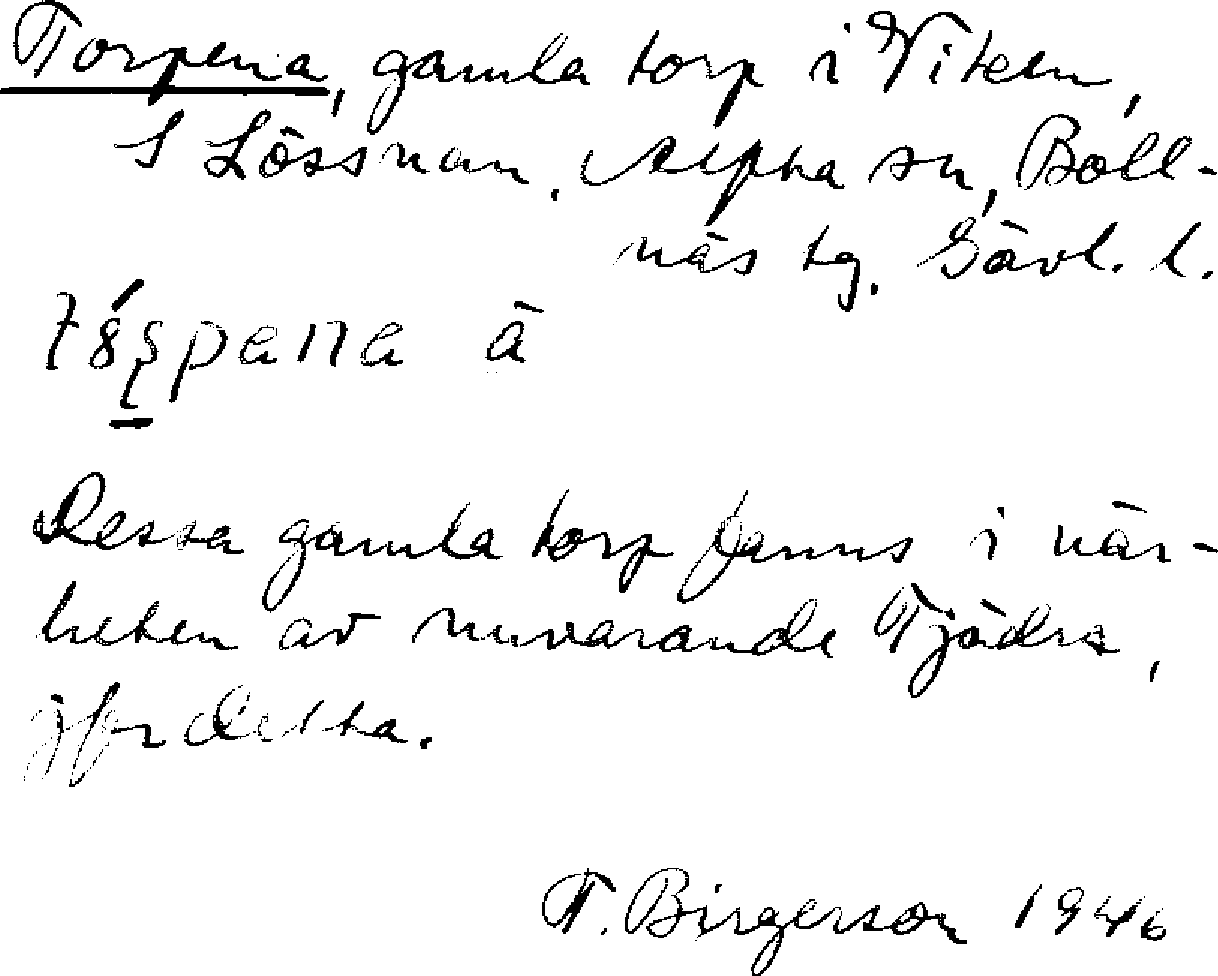 Torpena, gamla torp i Viken,
S Lössnan, Alfta sn, Boll-
näs tg. Gävl. l.
pana à
Dessa gamla torp fanns i när-
heten av nuvarande Tjädra,
jfr detta.
T. Birgerson 1946